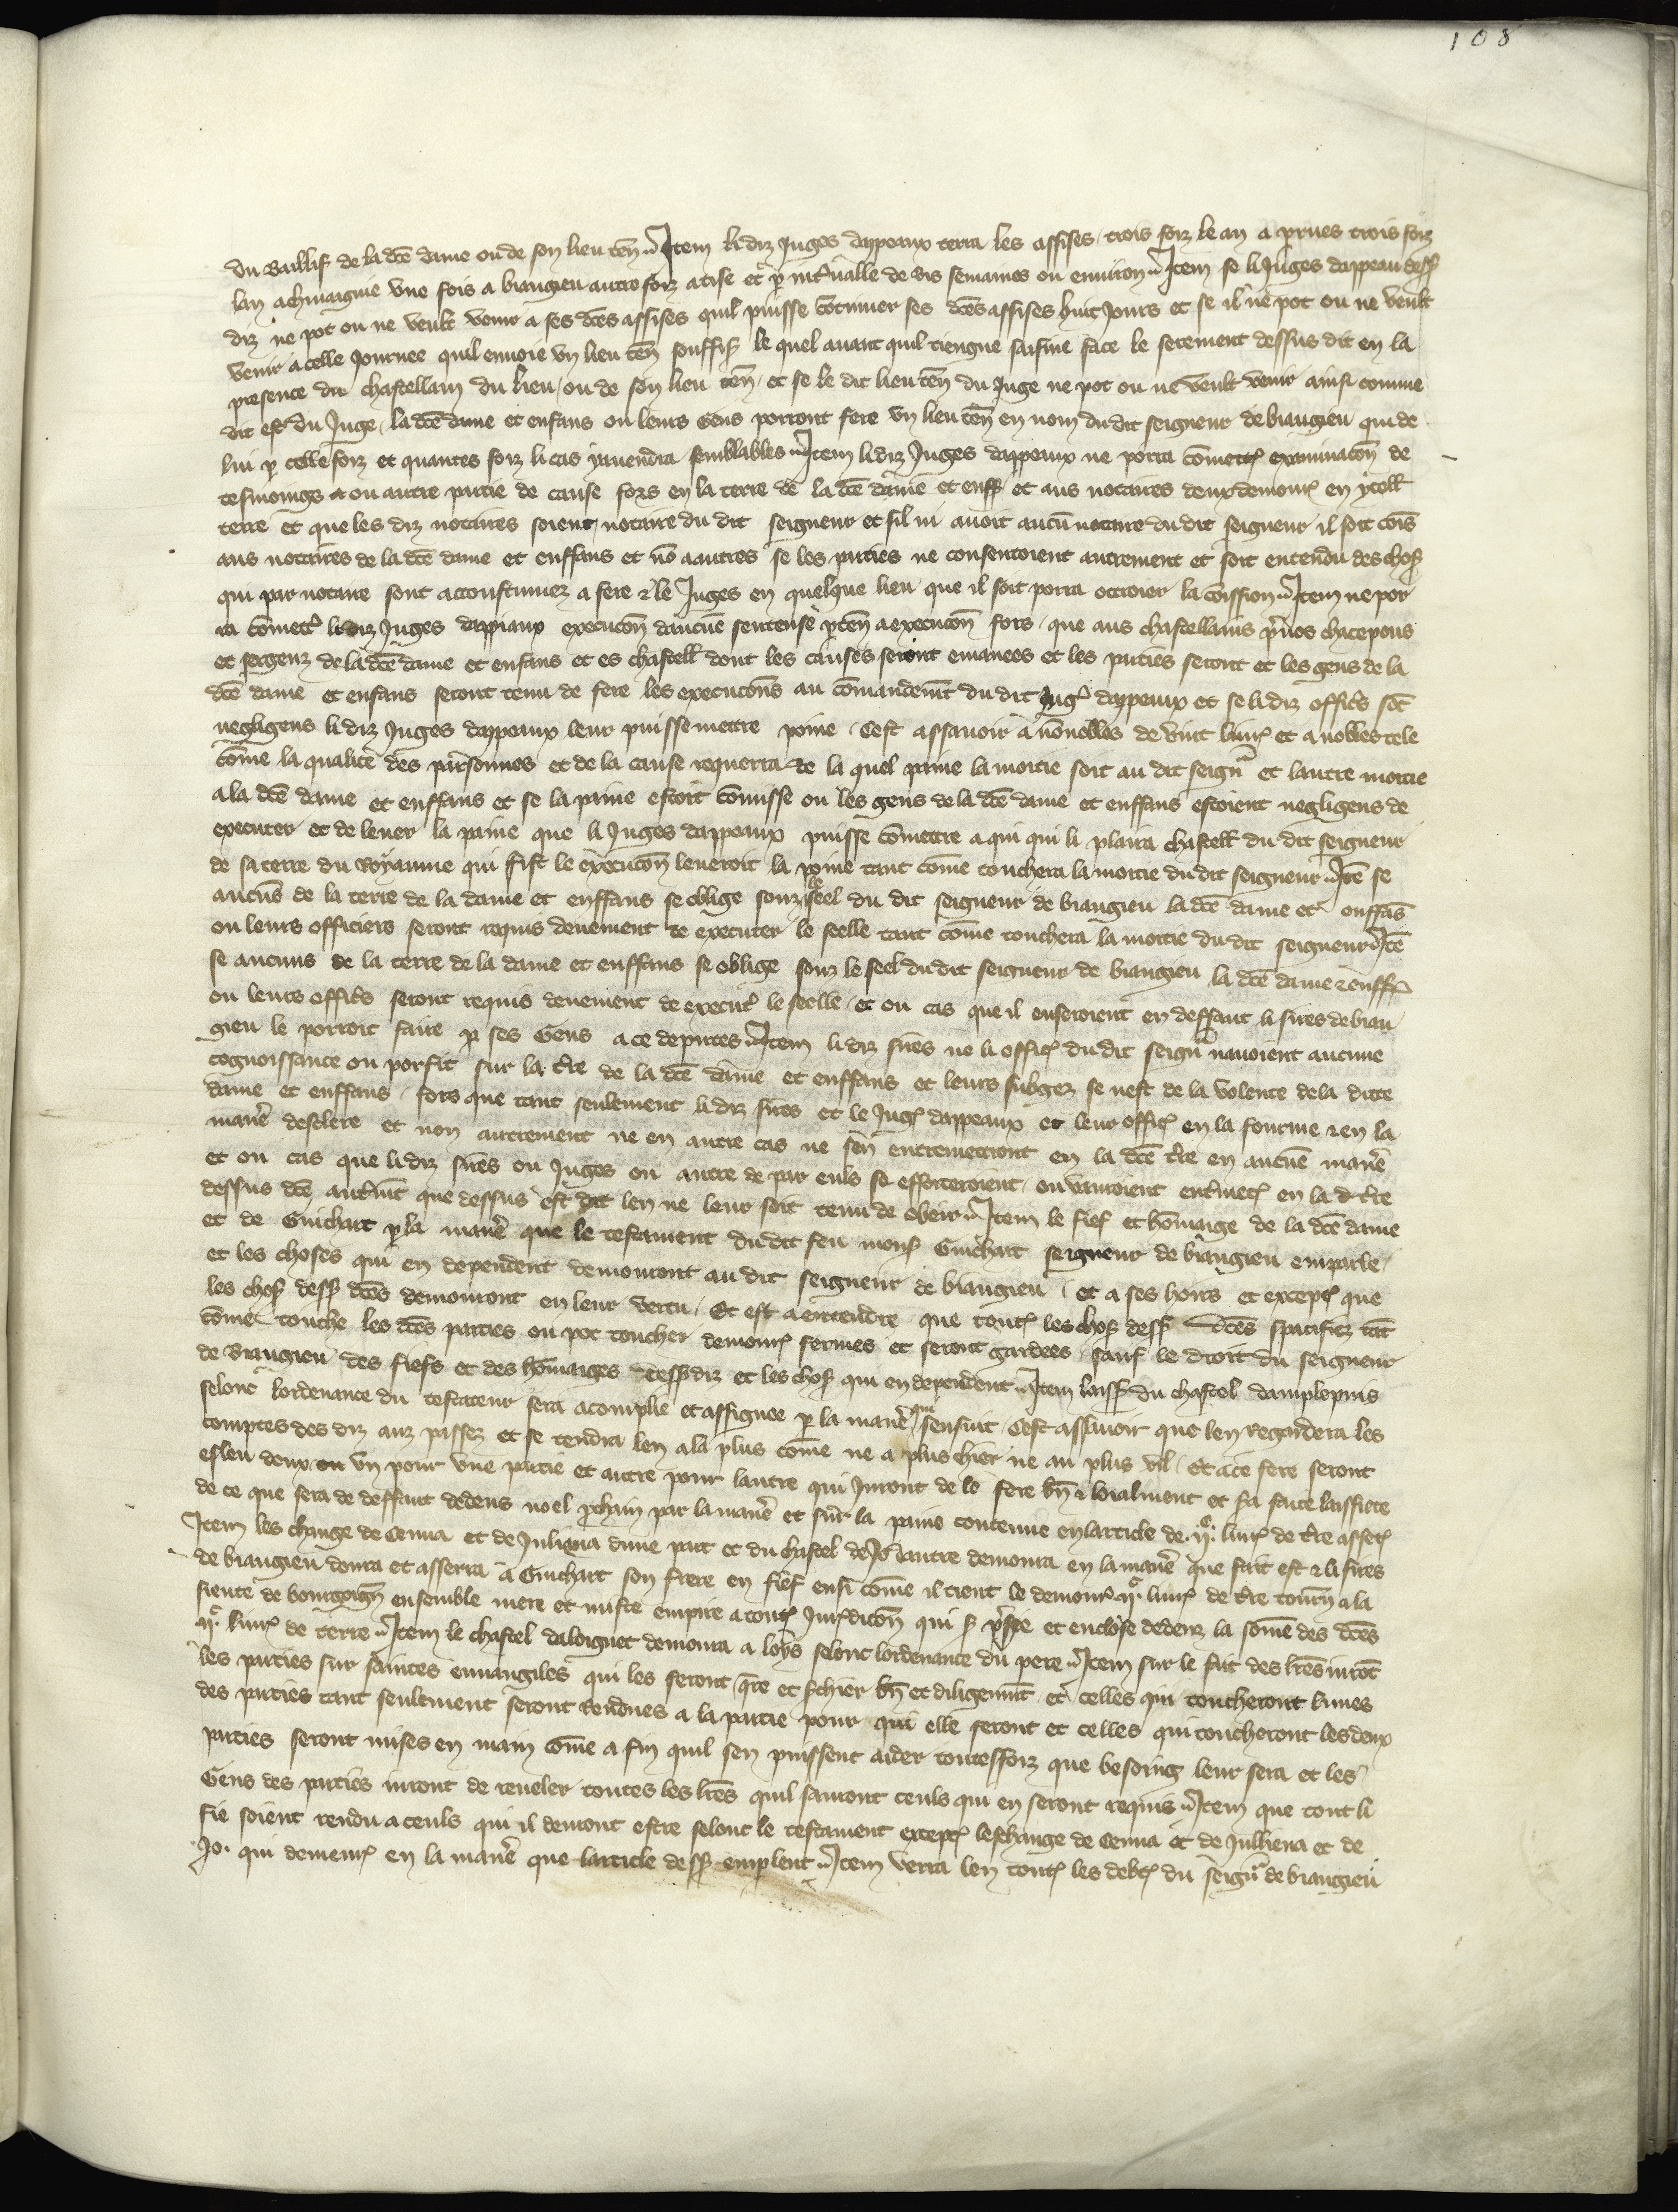 108
du Baillif de la dcē dame ou de son lieu ten̄ Item li diz Juges dappeaux terra les assises trois foiz le an a prues trois foiz
lan a chinaignie vne fois a biaugieu autre foiz a tise et p̱ int̄ualle de dis semaines ou enuiron Item se li Juges dappeau des
diz ne pot ou ne veult venir a ses dcēs assises quil puisse cōtinuer ses dcēs assises huit Jours et se il ne pot ou ne veult
venir a celle Journee quil enuoie vn lieu ten̄ souffis̄ le quel auant quil tiengne saisine face le serement dessus dit en la
presence du chastellain du lieu ou de son lieu ten̄ et se le dit lieu ten̄ du Juge ne pot ou ne veult venir ainsi comme
dit est du Juge la dcē dame et enfans ou leurs Gens porront fere vn lieu ten̄ en nom du dit seigneur de biaugieu qui de
lui p̱ celle foiz et quantes foiz li cas yauendra semblables Item li diz Juges dappeaux ne porra cōmett̄ examinacōn de
tesmoings ou autre partie de cause fors en la terre de la dcē dame et enff̄ et aus notaires deux demour̄ en ycell̄
terre et que les diz notaires soient notaire du dit seigneur et sil ni auoit aucū notaire du dit seigneur il soit cōis
aus notaires de la dcē dame et enffans et nō a autres se les parties ne consentoient autrement et soit entendu des chos̄
qui par notaire sont accoustumez a fere & le Juges en quelque lieu que il soit porra ottroier la cōission Item ne por
ra cōmett̄ li diz Juges dappiaux execucōn daucūe sentense p̱ten̄ a execucōn fors que aus chastellains p̱uos chacepous
et sergenz de la dcē dame et enfans et es chastell̄ dont les causes seront emanees et les parties seront et les gens de la
dcē dame et enfans seront tenu de fere les execucōns au cōmandemt̄ du dit Juḡ dappeaux et se li diz offic̄s sōt
negligens li diz Juges dappeaux leur puisse mettre poine Cest assauoir a nō nobles de vint liur̄ et a nobles tele
cōme la qualite des parsonnes et de la cause requerra de la quel paine la moitie soit au dit seign̄r et lautre moitie
a la dcē dame et enffans et se la paine estoit cōmisse ou les gens de la dcē dame et enffans estoient negligens de
executer et de leuer la paine que li Juges dappeaux puisse cōmettre a qui qui li plaira chastell̄ du dit seigneur
de sa terre du Royaume qui fist le execucōn leueroit la poine tant cōme touchera la moitie du dit seigneur Itē se
aucūs de la terre de la dame et enffans se oblige souz le seel du dit seigneur de biaugieu la dcē dame et enffās
ou leurs officiers seront requis deuement de executer le seelle tant cōme touchera la moitie du dit seigneur Itē
se aucuns de la terre de la dame et enffans se oblige souz le seel du dit seigneur de biaugieu la dcē dame & enff̄
ou leurs offic̄s seront requis deuement de execut̄ le seelle et ou cas que il enseroient en deffaut li sires de biau
gieu le porroit faire p̱ ses Gens a ce deputes Item li diz sires ne li offic̄ du dit seign̄r nauoient aucune
cognoissance ou porfit sur la t̄re de la dcē dame et enffans et leurs subgez se nest de la volente de la ditte
dame et enffans fors que tant seulement li diz sires et le Juḡ dappeaux et leur offic̄ en la fourme & en la
manē̄ desclere et non autrement ne en autre cas ne sen entremetront en la dcē t̄re en aucūe manē̄
et ou cas que li diz sires ou Juges ou autre de par euls se efforceroient ou vanroient ent̄met̄ en la d t̄re
dessus dcē aut̄mt̄ que dessus est dit len ne leur soit tenu de obeir Item le fief et hōmaige de la dcē dame
et de Guichart p̱ la manē̄ que le testament du dit feu mons̄ Guichart seigneur de biaugieu emparle
et les choses qui en dependent demouront au dit seigneur de biaugieu et a ses hoirs et except̄ que
les chos̄ dess̄ dcēs demouront en leur vertu Et est a entendre que tout̄ les chos̄ dess̄ dcēs spacifiez tāt
cōme touche les dcēs parties ou pot toucher demour̄ fermes et seront gardees sauf le droit du seigneur
de Biaugieu des fiefs et des hōmaiges dess̄ diz et les chos̄ qui en dependent Item laiss̄ du chastel damplepuis
selonc lordenance du testateur sera acomplie et assignee p̱ la manē̄ qui sensuit Cest assauoir que len regardera les
comptes des diz anz passez et se tendra len a la plus cōme ne a plus chier ne au plus vil Et a ce fere seront
esleu deux vn pour vne partie et autre pour lautre qui Juront de le fere bn̄ & loialment et sa faite laissiere
de ce que sera de deffaut dedens noel p̱chain par la manē̄ et sur la paine contenue en larticle de .ijͨ. liur̄ de t̄re asset̄
Item les change de Cenua et de Juliena dune part et du chastel de Jo lautre demoura en la manē̄ que fait est & li sires
de biaugieu donra et asserra a Guichart son frere en fief ensi cōme il tient le demour̄ ijͨ. liur̄ de t̄re tourn̄ a la
siente de bourgoign̄ ensemble mere et miste empire a tout̄ Jur̄dicōn qui s̄ p̱sie et enclose dedenz la sōme des dcēs
ijͨ. liur̄ de terre Item le chastel daloignet demoura a loys selonc lordenance du pere Item sur le fait des lr̄es iurōt
les parties sur saintes euuangiles qui les feront q̄re et s̄chier bn̄ et diligenmt̄ et celles qui toucheront lunes
des parties tant seulement seront rendues a la partie pour qui elle seront et celles qui toucheront les deux
parties seront mises en main cōme a fin quil sen puissent aider toutesfoiz que besoing leur sera et les
Gens des parties iuront de reueler toutes les lr̄es quil sauront ceuls qui en seront requis Item que tout li
fie soient rendu a ceuls qui il demont estre selonc le testament except̄ leschange de Cenua et de Julliena et de
Jo. qui demeur̄ en la manē̄ que larticle dess̄ emplent Item verra len tout̄ les debt̄ du seign̄r de biaugieu